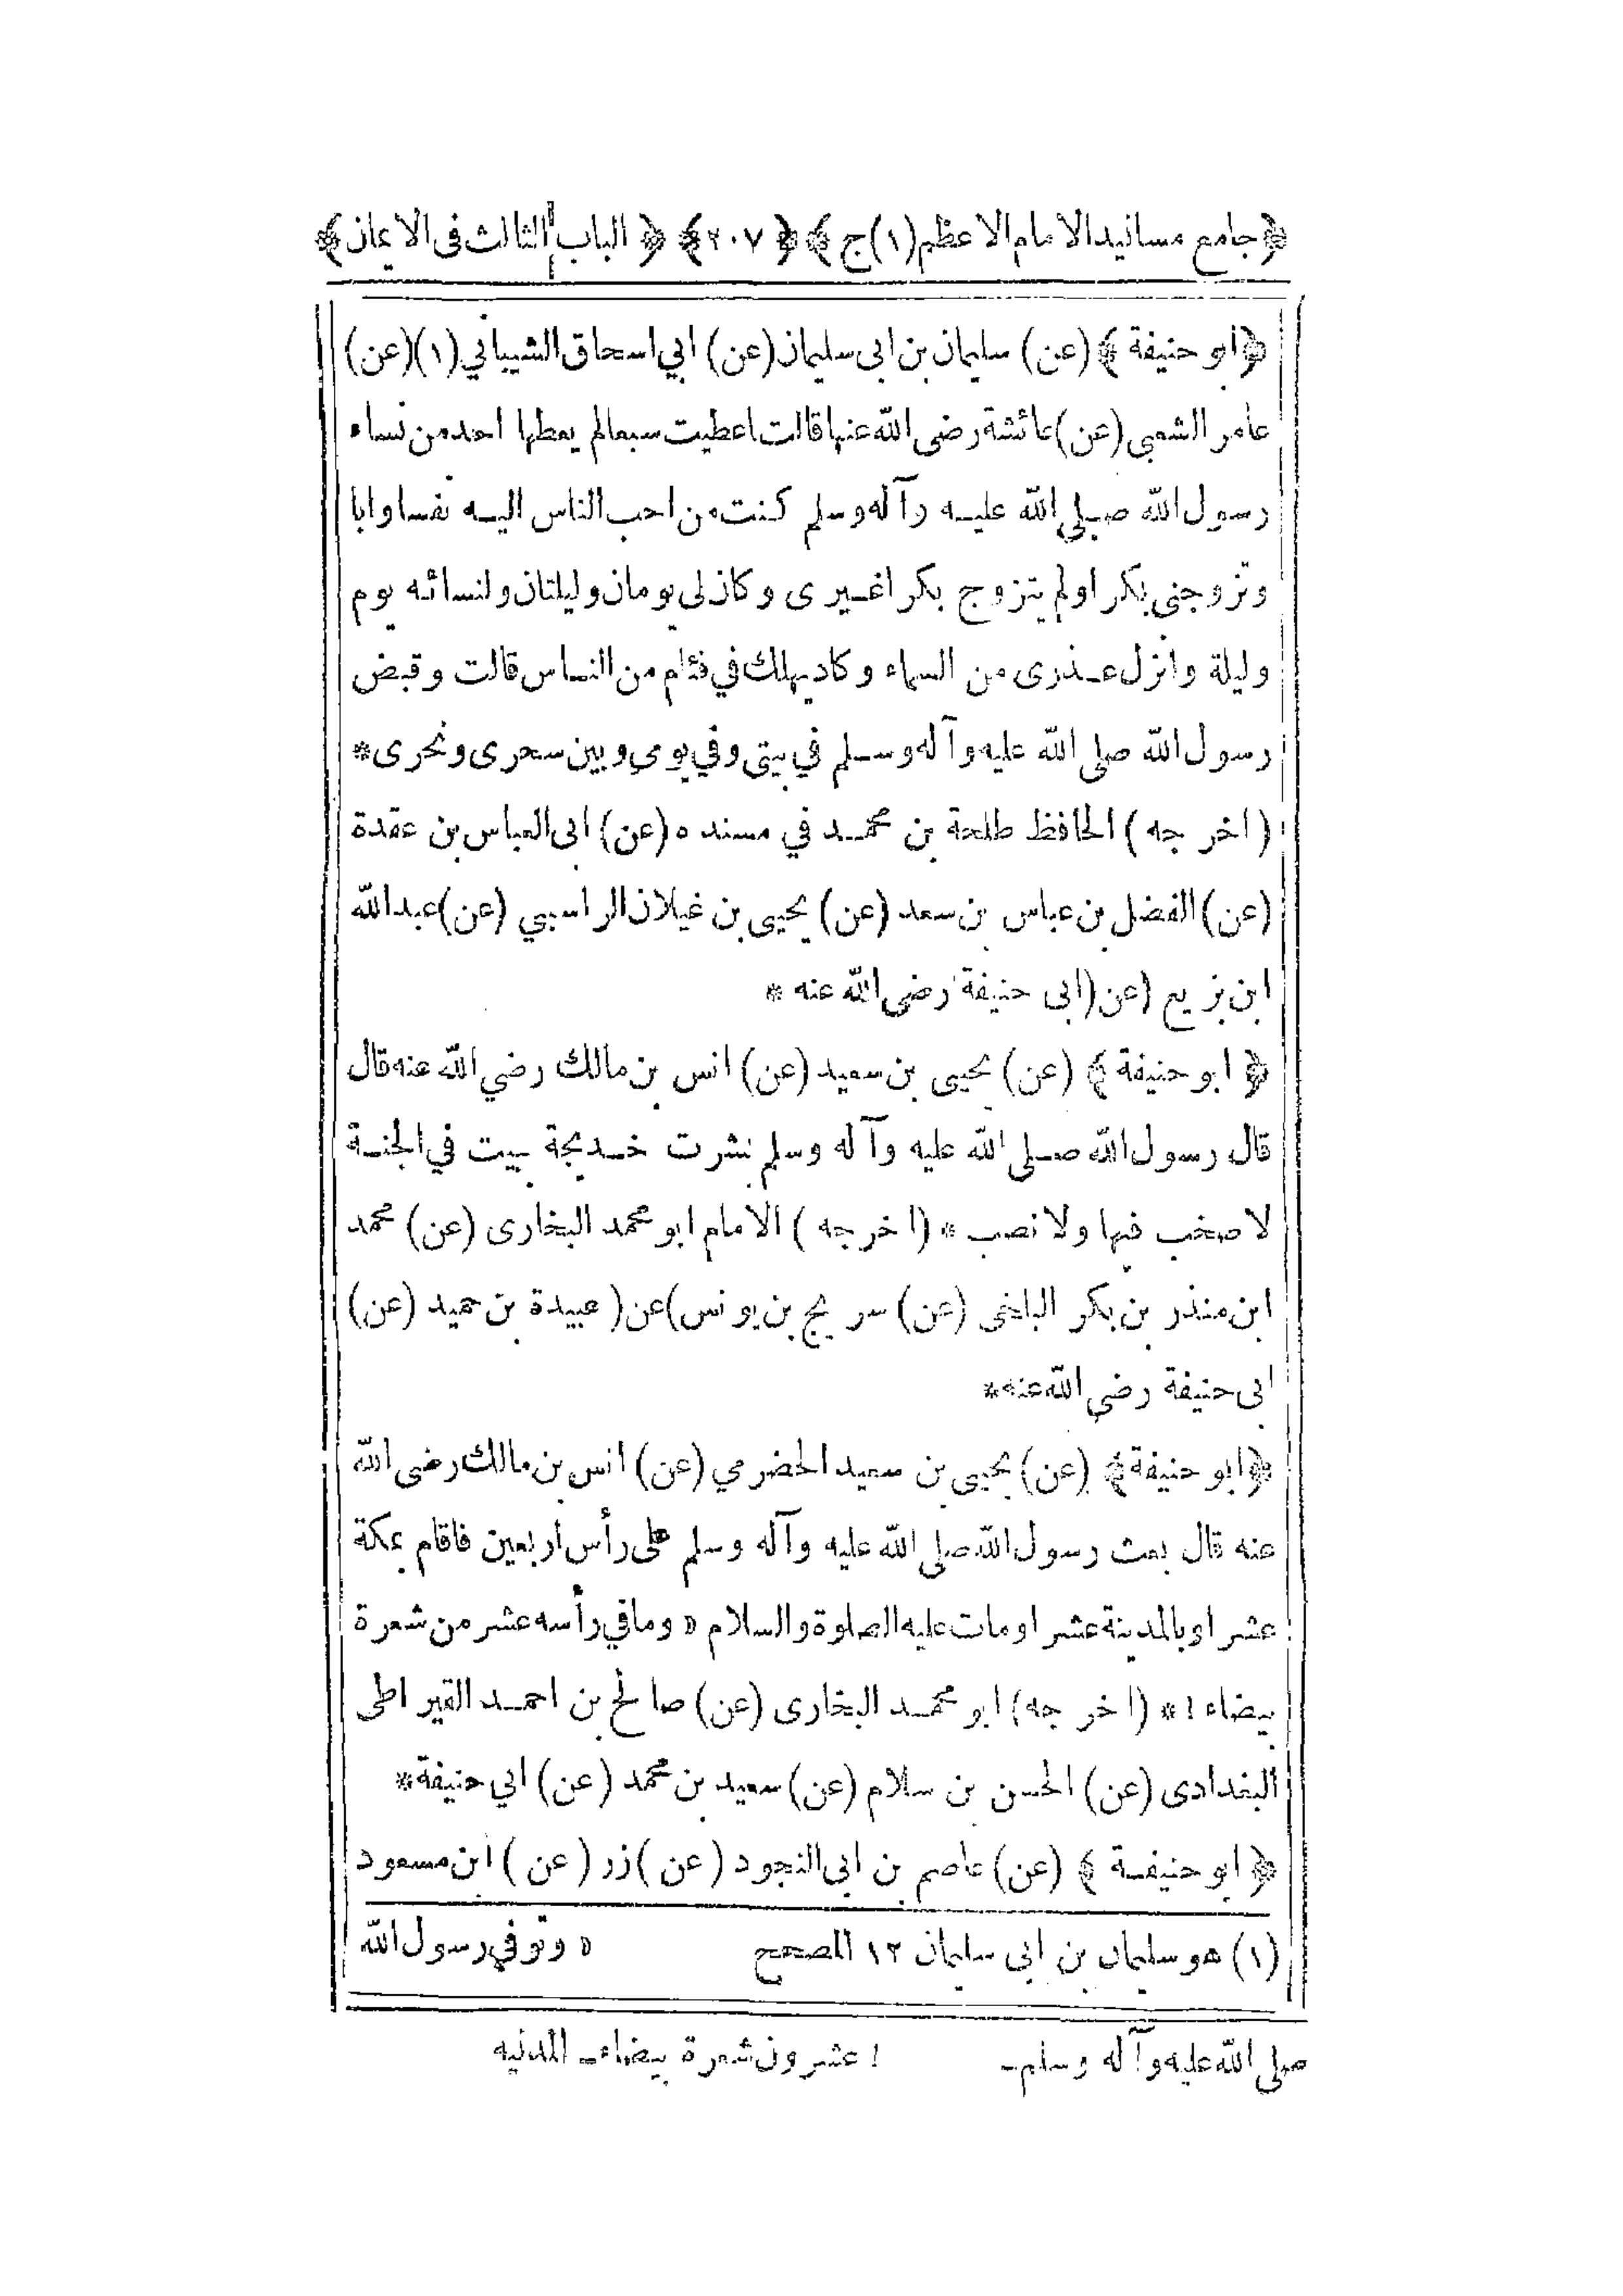 ﴿جامع مسانيد الامام الاعظم(١)ج﴾ ﴿٢٠٧﴾ ﴿الباب الثالث فى الايمان﴾
﴿ابو حنيفة﴾ (عن) سليمان بن ابى سليمان (عن) ابي اسحاق الشيباني(١)(عن)
عامر الشعبى (عن) عائشة رضى الله عنها قالت اعطيت سبعا لم يعطها احد من نساء
رسول الله صلى الله عليه وآله وسلم كنت من احب الناس اليه نفسا وابا
وتزوجنى بكرا ولم يتزوج بكرا غيرى وكان لى يومان وليلتان ولنسائه يوم
وليلة وانزل عذرى من السماء وكاد يهلك في فئام من الناس قالت وقبض
رسول الله صلى الله عليه وآله وسلم في بيتى وفي يومى وبين سحرى ونحرى*
(اخرجه) الحافظ طلحة بن محمد في مسنده (عن) ابى العباس بن عقدة
(عن) الفضل بن عباس بن سعد (عن) يحيى بن غيلان الراسبي (عن) عبد الله
ابن بزيع (عن( ابى حنيفة رضى الله عنه *
﴿ابو حنيفة﴾ (عن) يحيى بن سعيد (عن) انس بن مالك رضي الله عنه قال
قال رسول الله صلى الله عليه وآله وسلم بشرت خديجة ببيت في الجنة
لا صخب فيها ولا نصب * (اخرجه) الامام ابو محمد البخارى (عن) محمد
ابن منذر بن بكر البلخى (عن) سريج بن يونس)عن( عبيدة بن حميد (عن)
ابى حنيفة رضي الله عنه*
﴿ابو حنيفة﴾ (عن) يحيى بن سعيد الحضرمي (عن) انس بن مالك رضى الله
عنه قال بعث رسول الله صلى الله عليه وآله وسلم على رأس أربعين فاقام بمكة
عشرا وبالمدينة عشرا ومات عليه الصلوة والسلام ٥ وما في رأسه عشر من شعرة
بيضاء ! * (اخرجه) ابو محمد البخارى (عن) صالح بن احمد القيراطى
البغدادى (عن) الحسن بن سلام (عن) سعيد بن محمد (عن) ابي حنيفة*
﴿ابو حنيفة﴾ (عن) عاصم بن ابى النجود (عن) زر (عن) ابن مسعود
(١) هو سليمان بن ابى سليمان ١٢ المصحح ٥ وتوفي رسول الله
صلى الله عليه وآله وسلم- ! عشرون شعرة بيضاء- المدنيه